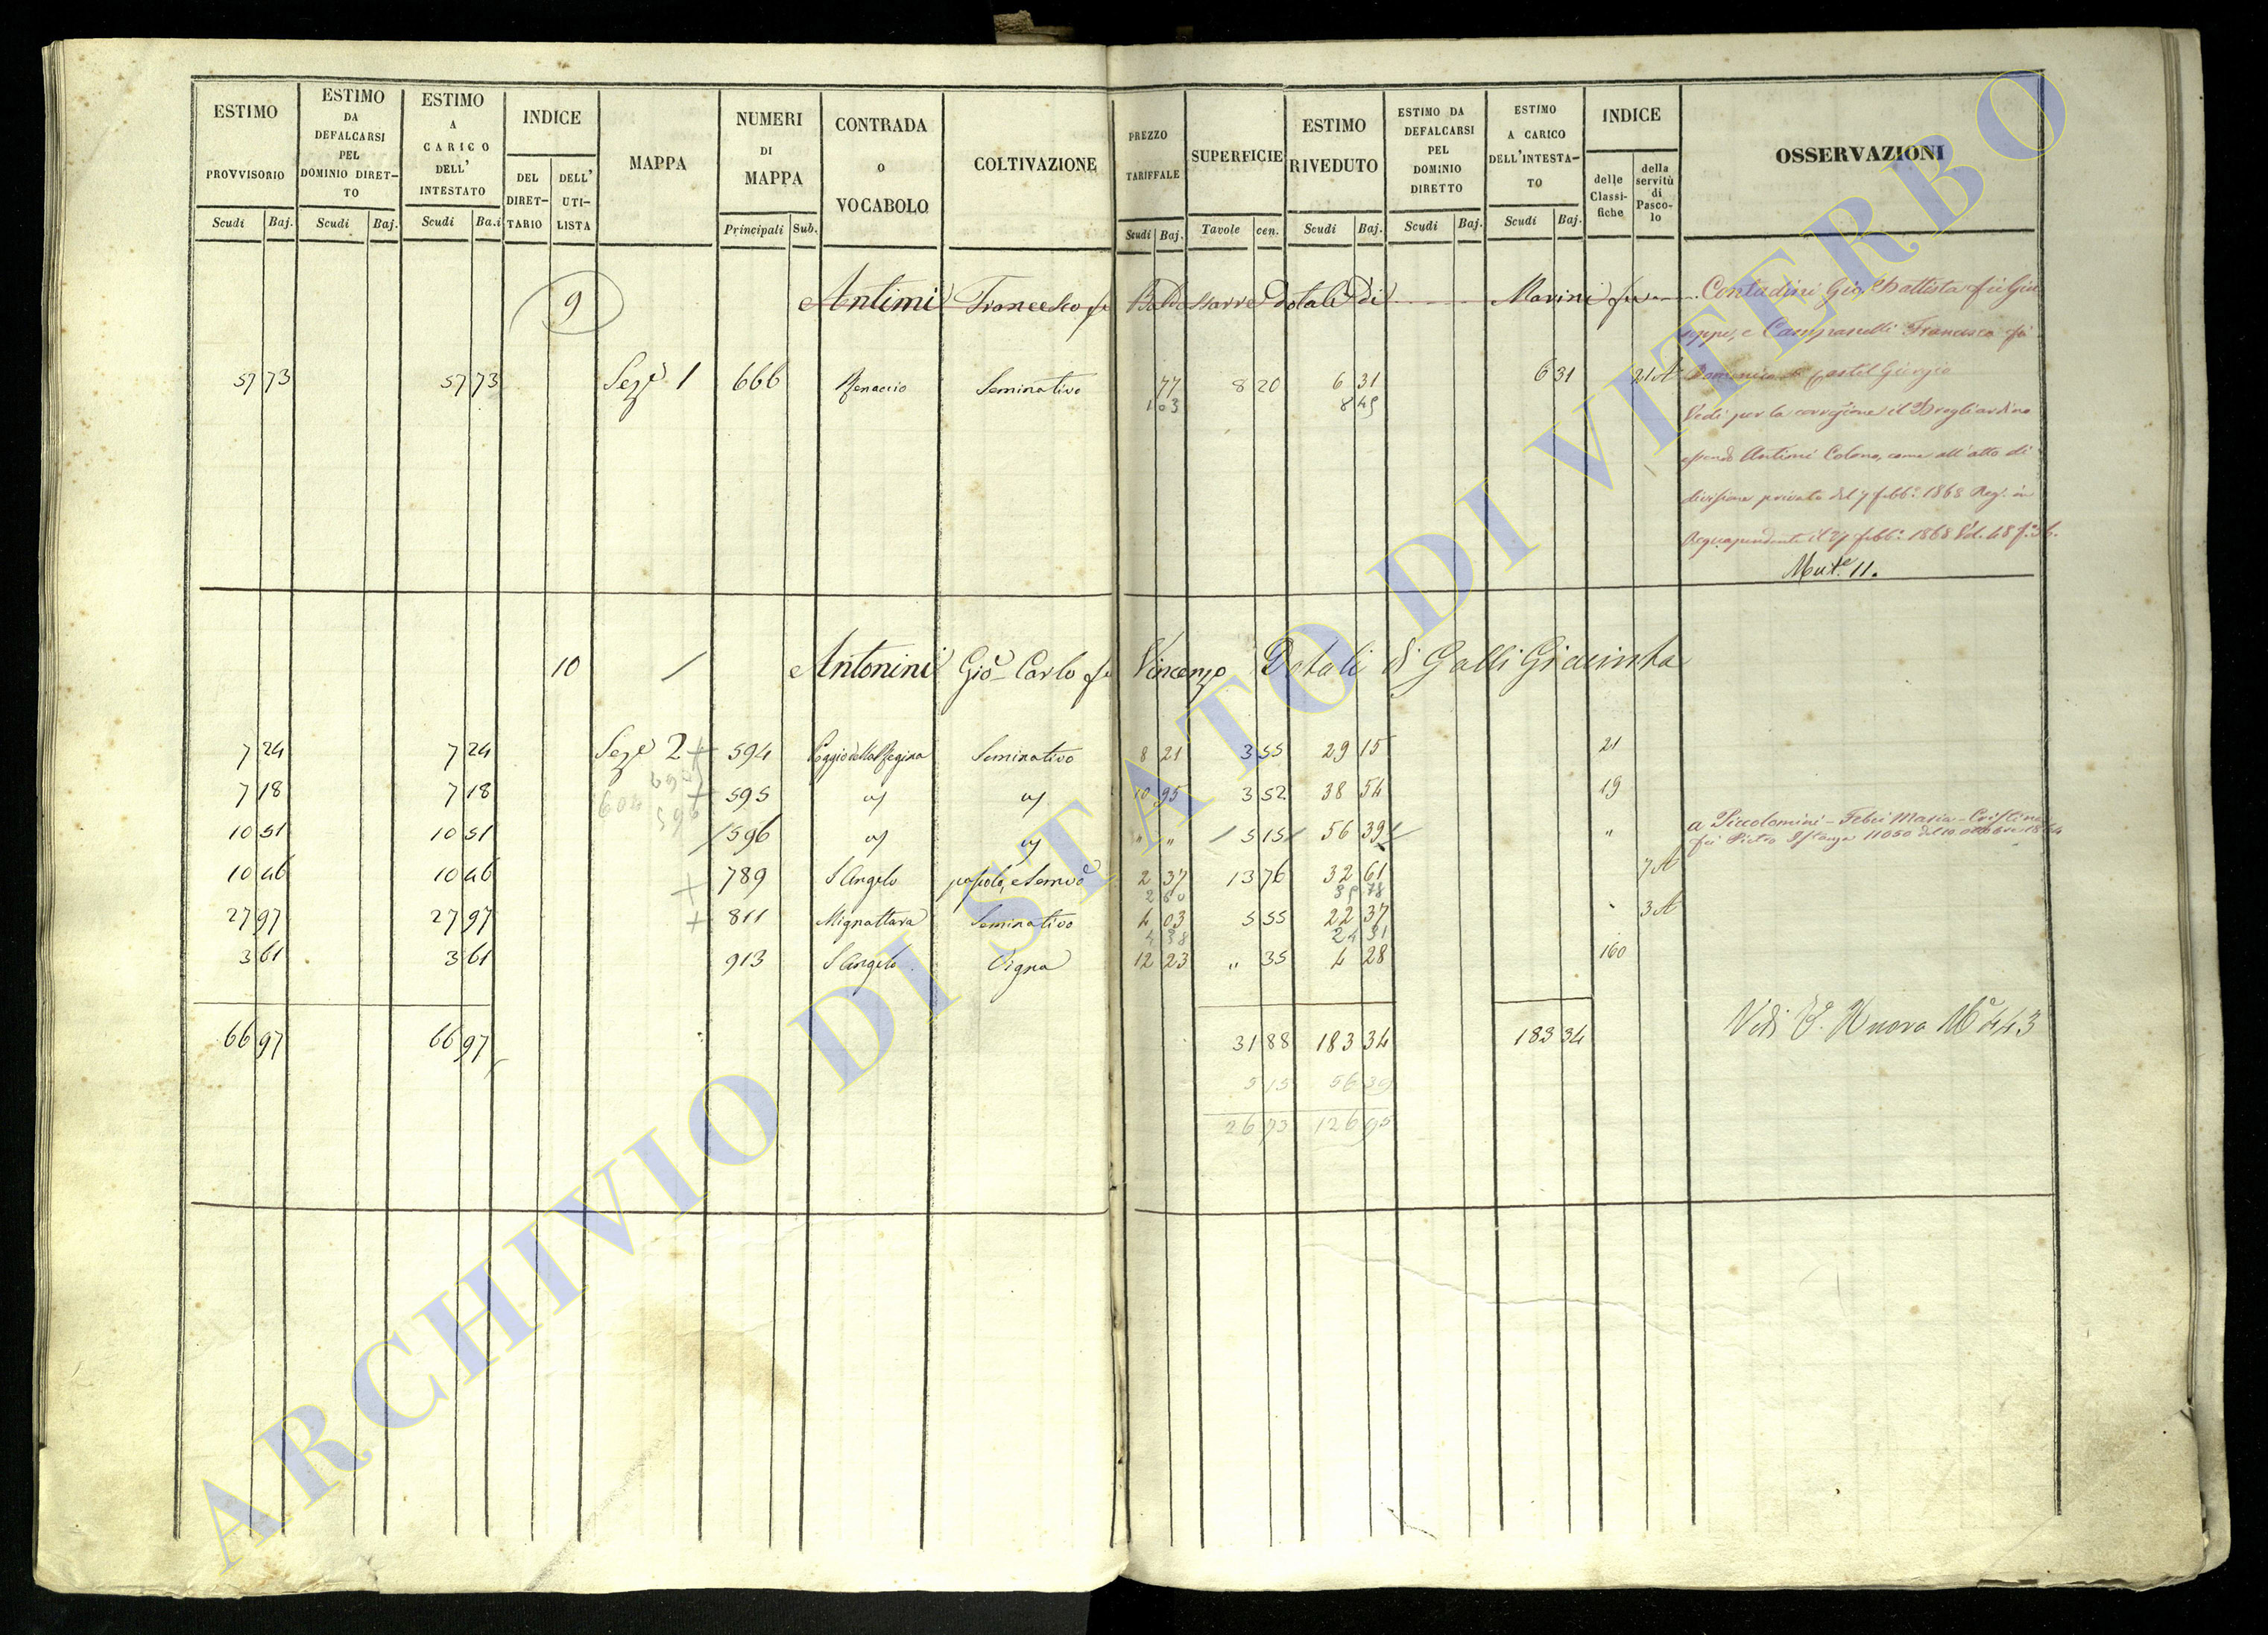 ESTIMO PROVVISORIO Scudi Baj.
ESTIMO DA DEFALCARSI PEL DOMINIO DIRETTO Scudi Baj.
ESTIMO A CARICO DELL' INTESTATO Scudi Ba.i
INDICE DEL DIRETTARIO DELL' UTILISTA
MAPPA
NUMERI DI MAPPA Principali Sub.
CONTRADA O VOCABOLO
COLTIVAZIONE
PREZZO TARIFFALE Scudi Baj.
SUPERFICIE Tavole cen.
ESTIMO RIVEDUTO Scudi Baj.
ESTIMO DA DEFALCARSI PEL DOMINIO DIRETTO Scudi Baj.
ESTIMO A CARICO DELL'INTESTATO Scudi Baj.
INDICE delle Classifiche della servitù di Pascolo
OSSERVAZIONI
9 Antimi Francesco fu Baldassarre dotale di Marini
57 73 57 73 Seze 1 666 Renaccio Seminativo 77 8 20 6 31 6 31 21 A
1 03 8 45
Contadini Gio Battista fu Giu
seppe, e Francesco fu
Domenico di Castel Giorgio
Vedi per la corregione il Brogliardino
essendo Antimi Colono, come all'atto di
divisione privata del 7 febb.o 1868 Reg. in
Acquapendente il 27 febb.o 1868 Vol. 48
Mut.e 11.
10 Antonini Gio Carlo fu Vincenzo Dotali di Galli Giacinta
7 24 7 24 Seze 2 + 594 Poggio della Regina Seminativo 8 21 3 55 29 15 21
7 18 7 18 + 595 10 95 3 52 38 54 19
10 51 10 51 / 596 " " / 5 15 / 56 39 "
a Piccolomini - Febei Maria - Cristina
fu Pietro Istanza 11050 del 10 ottobre 1864
10 46 10 46 + 789 S Angelo 2 37 13 76 32 61 7 A
2 60 35 78
27 97 27 97 + 811 Mignattara Seminativo 4 03 5 55 22 37 3 A
4 38 24 31
3 61 3 61 913 S Angelo Vigna 12 23 " 35 4 28 160
66 97 66 97 31 88 183 34 183 34
Vedi Nuova 443
5 15 56 39
26 73 126 95
ARCHIVIO DI STATO DI VITERBO